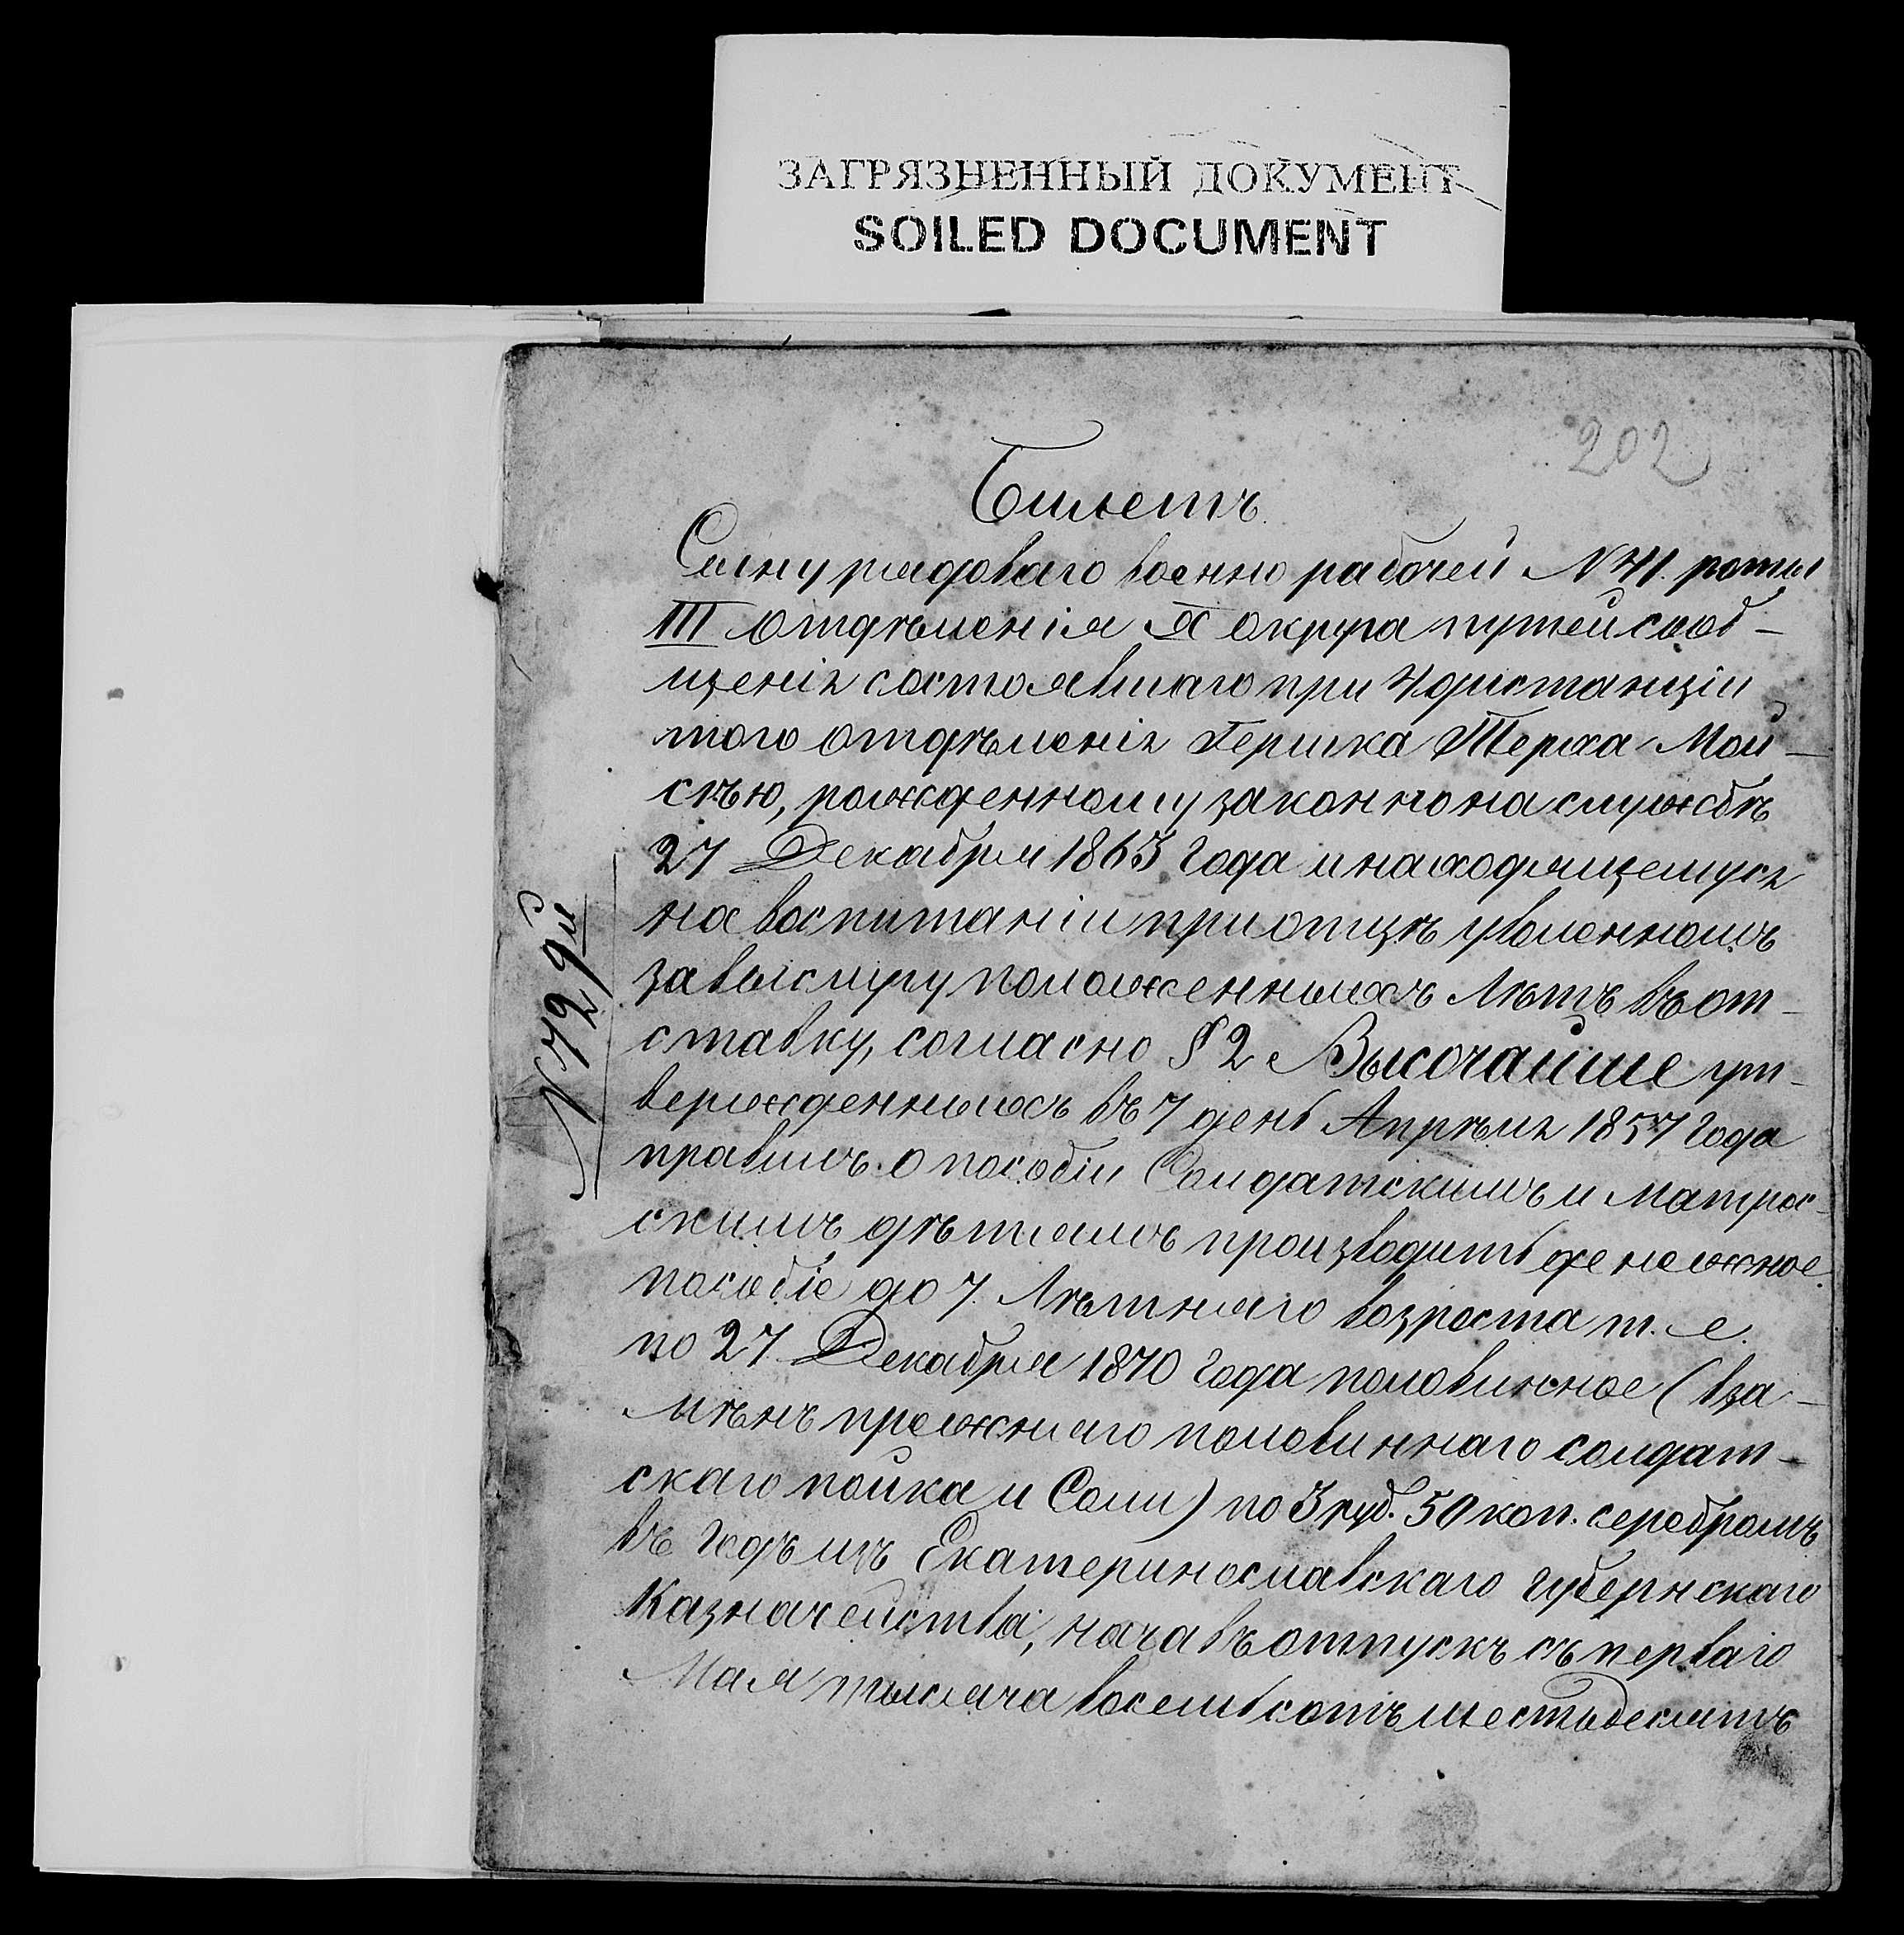 ЗАГРЯЗНЕННЫЙ ДОКУМЕНТ
SOILED DOCUMENT
202
Билетъ
Сыну рядоваго военно рабочей № 41. роты
III Отдѣленія X округа путей сооб-
щенія состоявшаго при 4 дистанціи
того отдѣленія Гершка Терха Мой-
сѣю, рожденному законно на службѣ
27 Декабря 1863 Года и находящемуся
на воспитаніи при отцѣ уволенномъ
за выслугу положенныхъ лѣтъ въ от-
ставку, согласно § 2 Высочайше ут-
вержденныхъ въ 7 день Апрѣля 1857 Года
правилъ о пособіи Солдатскимъ и матрос-
скимъ дѣтямъ производить денежное
пособіе до 7 Лѣтняго возраста т. е.
по 27 Декабря 1870 Года половинное (вза-
мѣнъ прежняго половиннаго солдат-
скаго пайка и Соли) по 3 руб. 50 коп. серебромъ
въ годъ изъ Екатеринославскаго Губернскаго
Казначейства, начавъ отпускъ съ перваго
Мая тысяча восемьсотъ шестьдесятъ
№ 729й